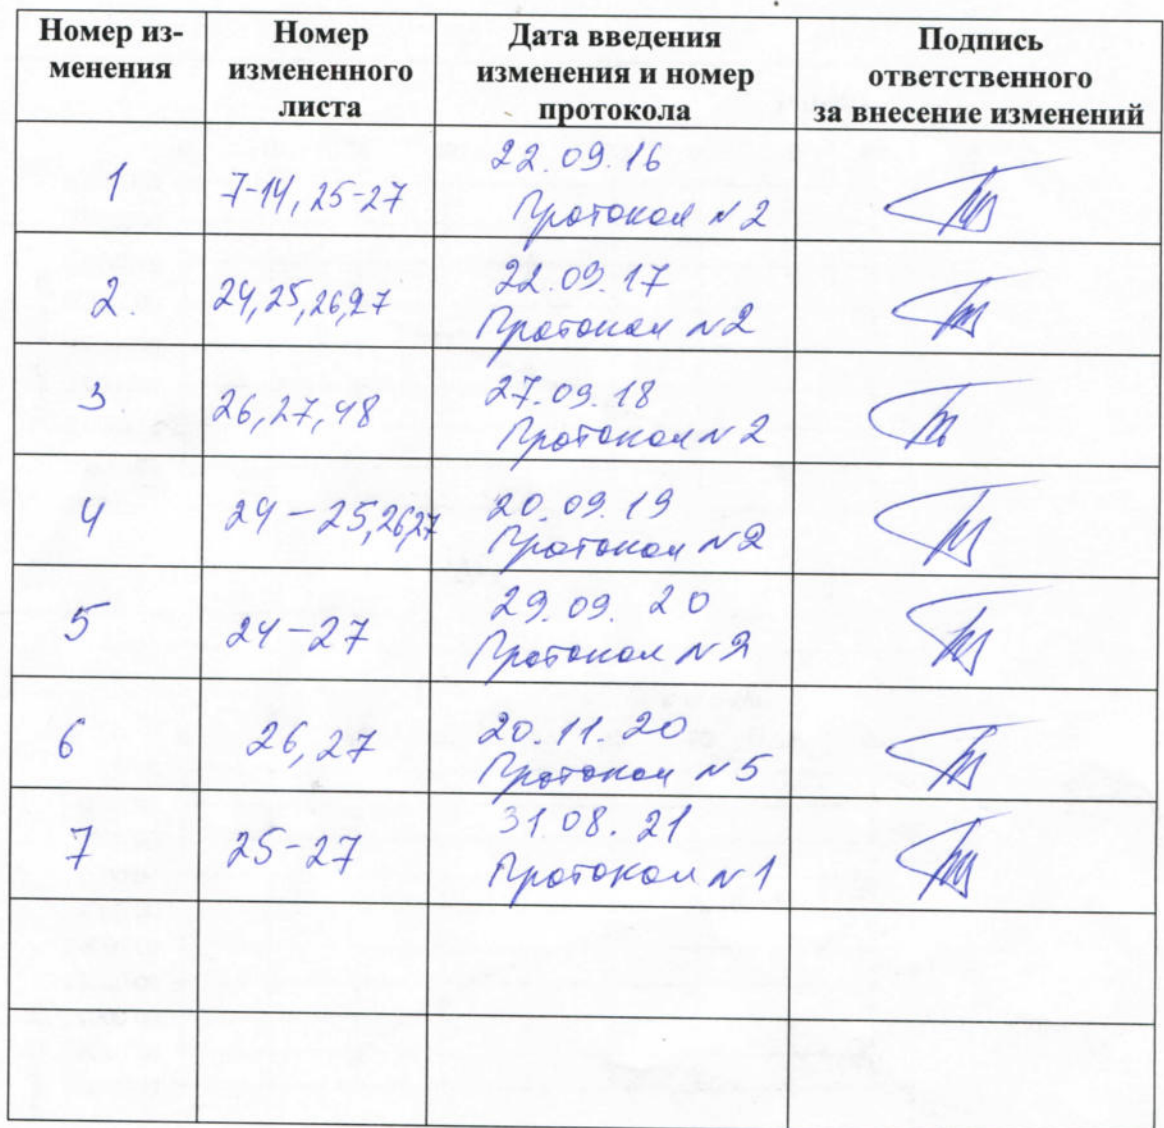 Номер из-
менения
Номер
измененного
листа
Дата введения
изменения и номер
протокола
Подпись
ответственного
за внесение изменений
1
7-14, 25-27
22.09.16
Протокол №2
2.
24,25,26,27
22.09.17
Протокол №2
3
26,27,48
27.09.18
Протокол №2
4
24-25,26,27
20.09.19
Протокол №2
5
24-27
29.09.20
Протокол №2
6
26,27
20.11.20
Протокол №5
7
25-27
31.08.21
Протокол №1